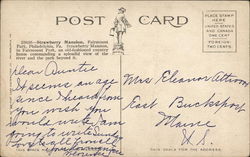 POST CARD
PLACE STAMP
HERE
UNITED STATES
AND CANADA
ONE CENT
FOREIGN-
TWO CENTS
Strawberry Mansion, Fairmount
Park, Philadelphia, Pa. Strawberry Mansion,
in Fairmount Park, an old-fashioned country
house commanding a splendid view of the
river and the park beyond it.
Dear Auntie
It seems an age
since I heard from
you wish you
would write am
going to write
Mrs Eleanor
East Bucksport
Maine
U.S.
THIS SPACE FOR THE ADDRESS.